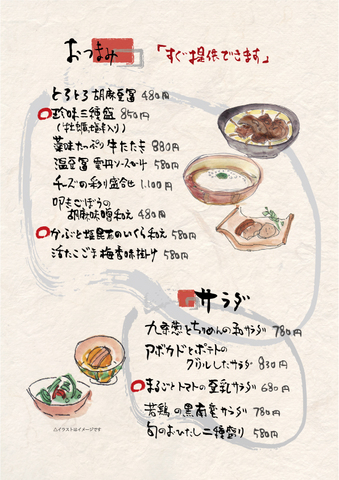 おつまみ 「すぐ提供できます」
とろとろ胡麻豆富 480円
珍味三種盛 850円
(牡蠣塩辛入り)
薬味たっぷり牛たたき 880円
温豆富 雲丹ソースかけ 580円
チーズの彩り盛合せ 1,100円
叩きごぼうの
胡麻味噌和え 480円
かぶと塩昆布のいくら和え 580円
活たこごま梅香味掛け 580円
サラダ
九条葱とちりめんの和サラダ 780円
アボカドとポテトの
グリルしたサラダ 830円
まるごとトマトの豆乳サラダ 680円
若鶏の黒南蛮サラダ 780円
旬のおひたし二種盛り 580円
△イラストはイメージです